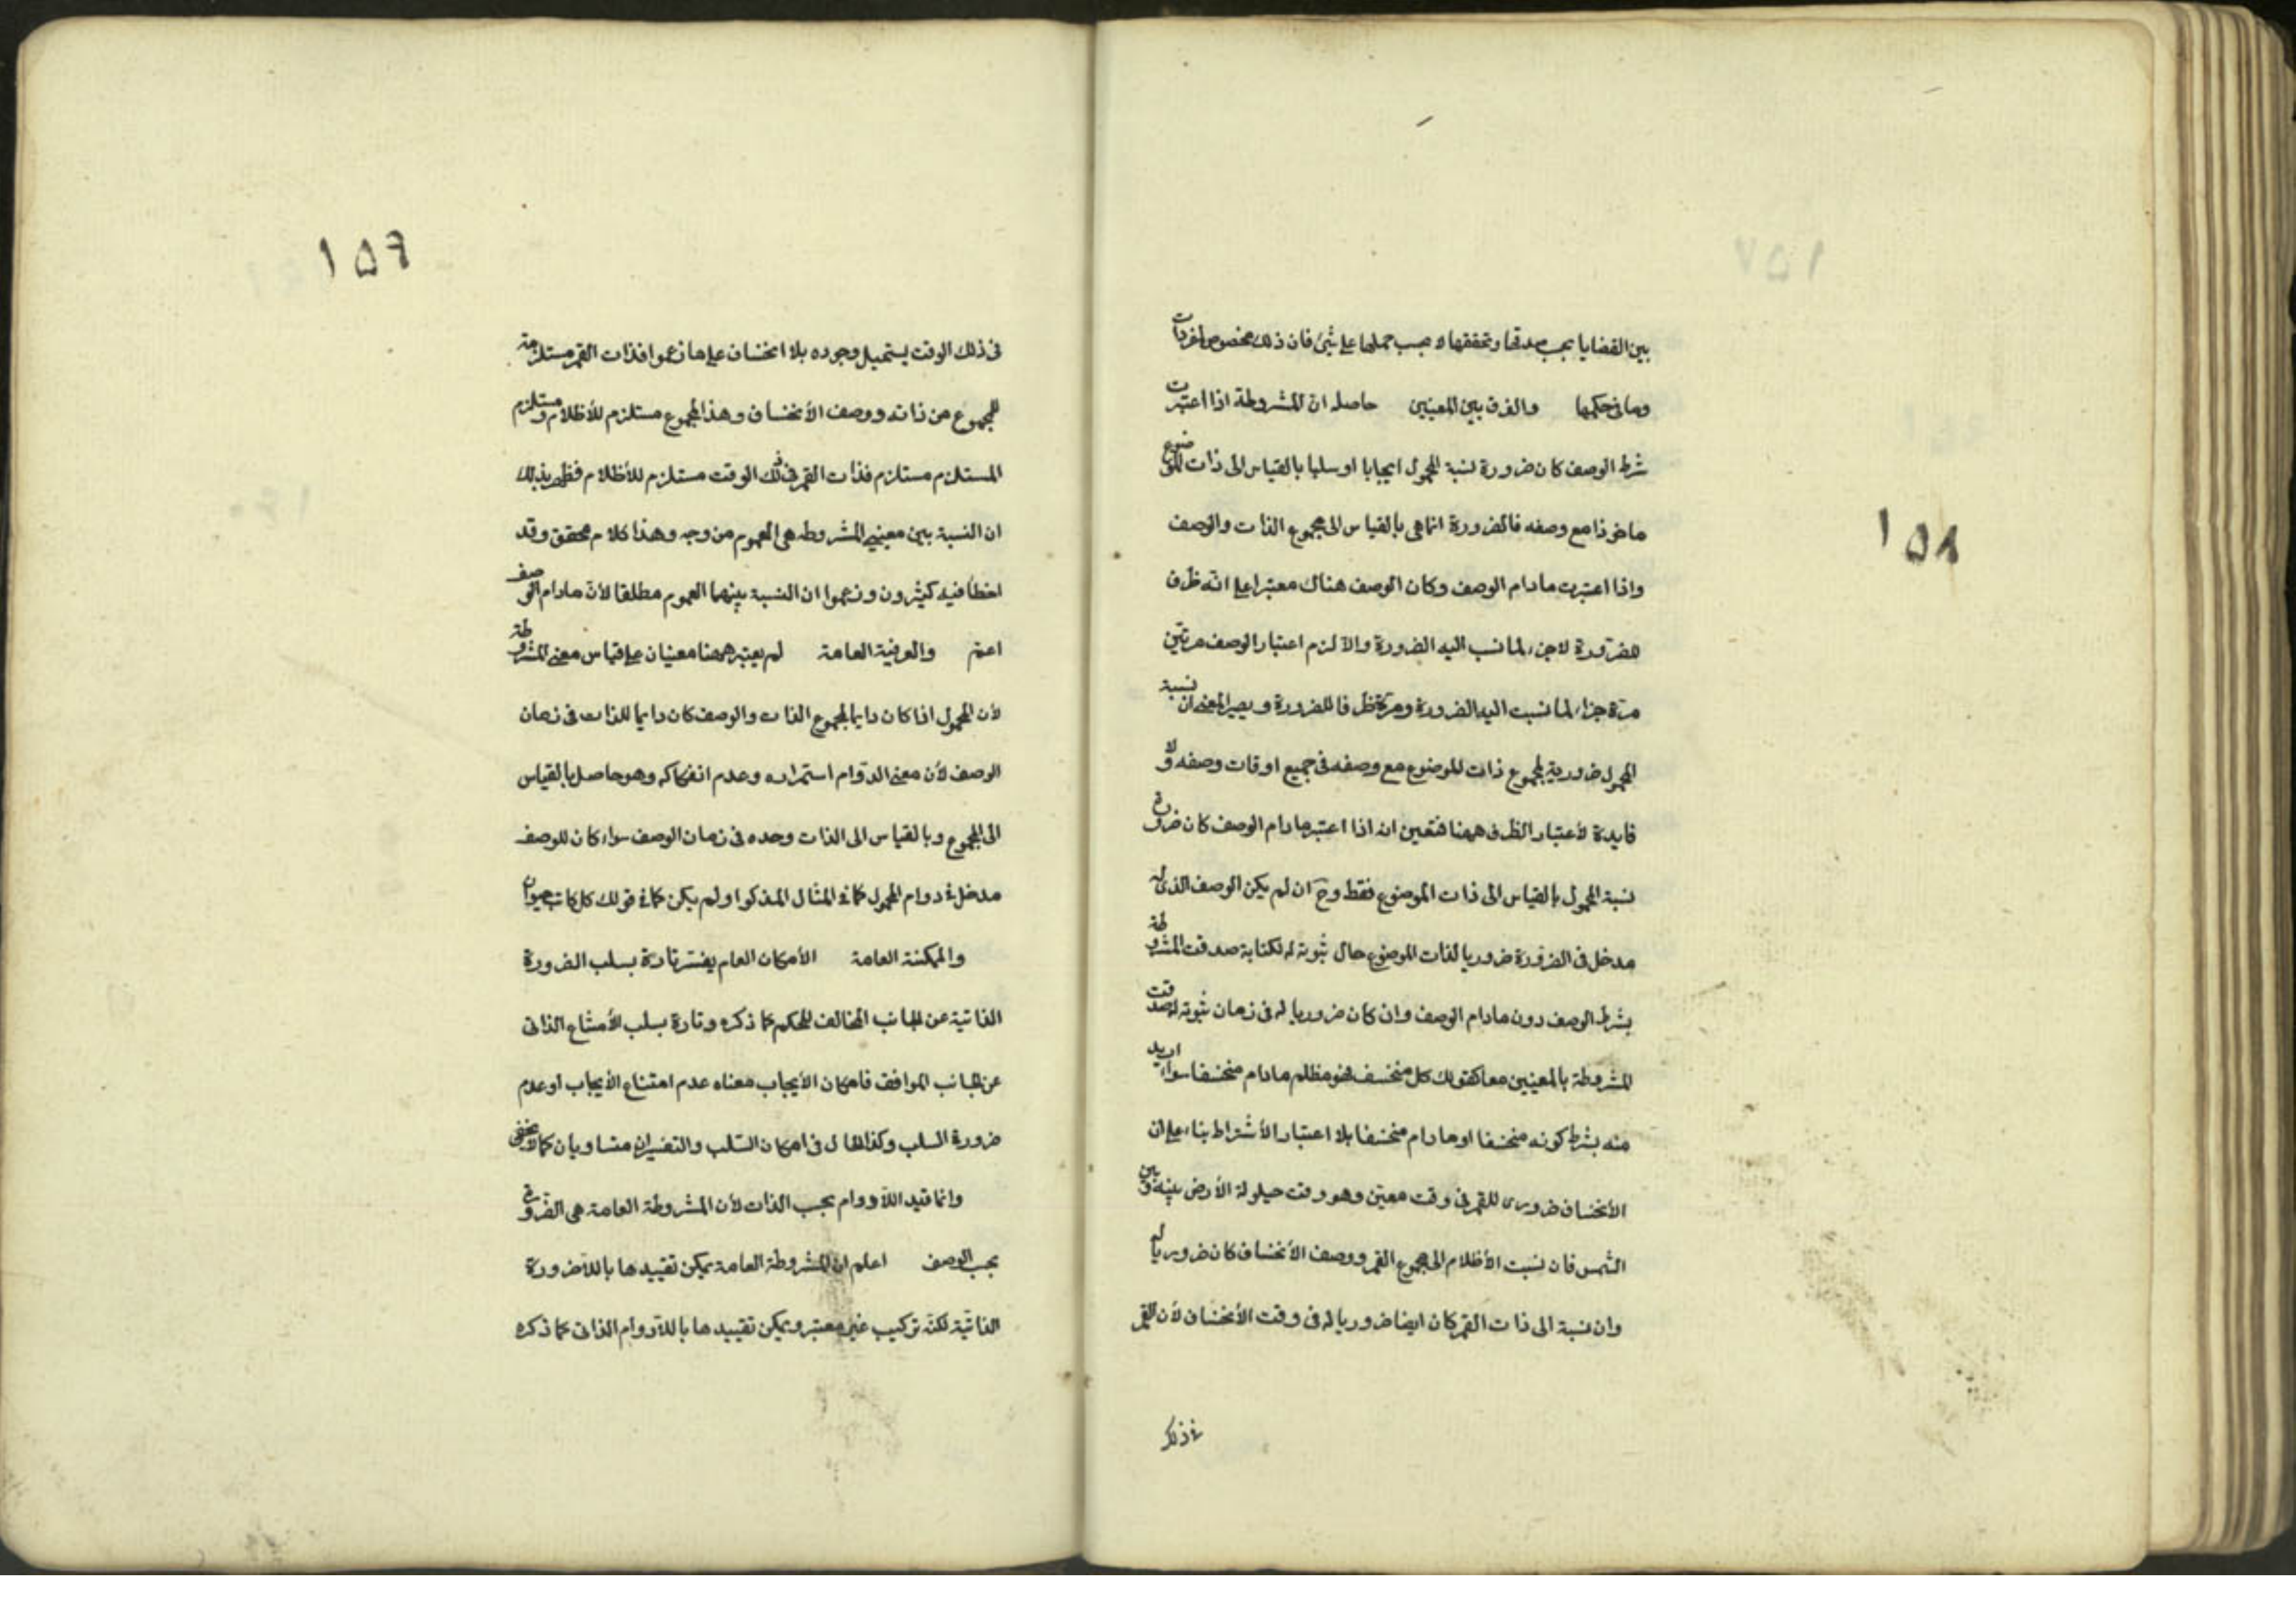 ١٥٨
بين القضايا بحسب صدقها وتحققها لا بحسب حملها على شئ فان ذلك مخصوص بالمفردات
وما فى حكمها والفرق بين المعنيين حاصله ان المشروطة اذا اعتبرت
شرط الوصف كان ضرورة نسبة المحمول ايجابا او سلبا بالقياس الى ذات الموضوع
ماخوذا مع وصفه فالضرورة انما هى بالقياس الى مجموع الذات والوصف
واذا اعتبرت مادام الوصف وكان الوصف هناك معتبرا على انه ظرف
للضرورة لا جزء لما نسب اليه الضرورة والا لزم اعتبار الوصف مرتين
مرة جزء لما نسبت اليه الضرورة ومرة ظرفا للضرورة ويصير المعنى ان نسبة
المحمول ضرورية لمجموع ذات الموضوع مع وصفه فى جميع اوقات وصفه ولا
فايدة لأعتبار الظرف ههنا فتعين انه اذا اعتبر مادام الوصف كان ضرورة
نسبة المحمول بالقياس الى ذات الموضوع فقط وح ان لم يكن الوصف الذى له
مدخل فى الضرورة ضروريا لذات الموضوع حال ثبوته له لكتابة صدقت المشروطة
بشرط الوصف دون مادام الوصف وان كان ضروريا له فى زمان ثبوته له صدقت
المشروطة بالمعنيين معا كقولك كل منخسف فهو مظلم مادام منخسفا سواء اريد
منه بشرط كونه منخسفا او مادام منخسفا بلا اعتبار الأشتراط بناء على ان
الأنخساف ضرورى للقمر فى وقت معين وهو وقت حيلولة الأرض بينه وبين
الشمس فان نسبت الأظلام الى مجموع القمر ووصف الأنخساف كان ضروريا له
وان نسبة الى ذات القمر كان ايضا ضروريا له فى وقت الأنخساف لأن القمر
فى ذلك
١٥٦
فى ذلك الوقت يستحيل وجوده بلا انخساف على ما زعموا فذات القمر مستلزمة
للمجموع من ذاته ووصف الأنخساف وهذا المجموع مستلزم للأظلام ومستلزم
المستلزم مستلزم فذات القمر فى ذلك الوقت مستلزم للأظلام فظهر بذلك
ان النسبة بين معنيى المشروطه هى العموم من وجه وهذا كلام محقق وقد
اخطأ فيه كثيرون وزعموا ان النسبة بينهما العموم مطلقا لأن مادام الوصف
اعم والعرفية العامة لم يعتبر ههنا معنيان على قياس معنى المشروطة
لأن المحمول اذا كان دايما لمجموع الذات والوصف كان دايما للذات فى زمان
الوصف لأن معنى الدوام استمراره وعدم انفكاكه وهو حاصل بالقياس
الى المجموع وبالقياس الى الذات وحده فى زمان الوصف سواء كان للوصف
مدخل فى دوام المحمول كما فى المثال المذكور او لم يكن كما فى قولك كل كاتب حيوان
والممكنة العامة الأمكان العام يفسر تارة بسلب الضرورة
الذاتية عن الجانب المخالف للحكم كما ذكره وتارة بسلب الأمتناع الذاتى
عن الجانب الموافق فامكان الأيجاب معناه عدم امتناع الأيجاب او عدم
ضرورة السلب وكذا الحال فى امكان السلب والتفسيران متساويان كما لا يخفى
وانما قيد اللادوام بحسب الذات لأن المشروطة العامة هى الضرورة
بحسب الوصف اعلم ان المشروطة العامة يمكن تقييدها باللاضرورة
الذاتية لكنه تركيب غير معتبر ويمكن تقييدها باللادوام الذاتى كما ذكره